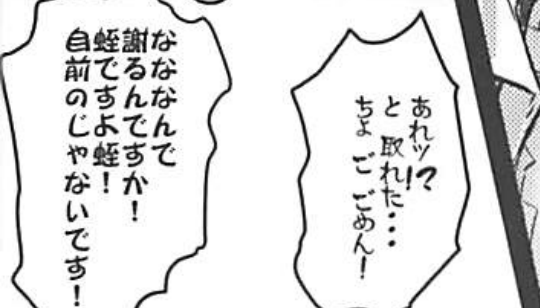 あれッ!?
と 取れた・・・
ちょ ご ごめん!
なななんで
謝るんですか!
蛭ですよ蛭!
自前のじゃないです!